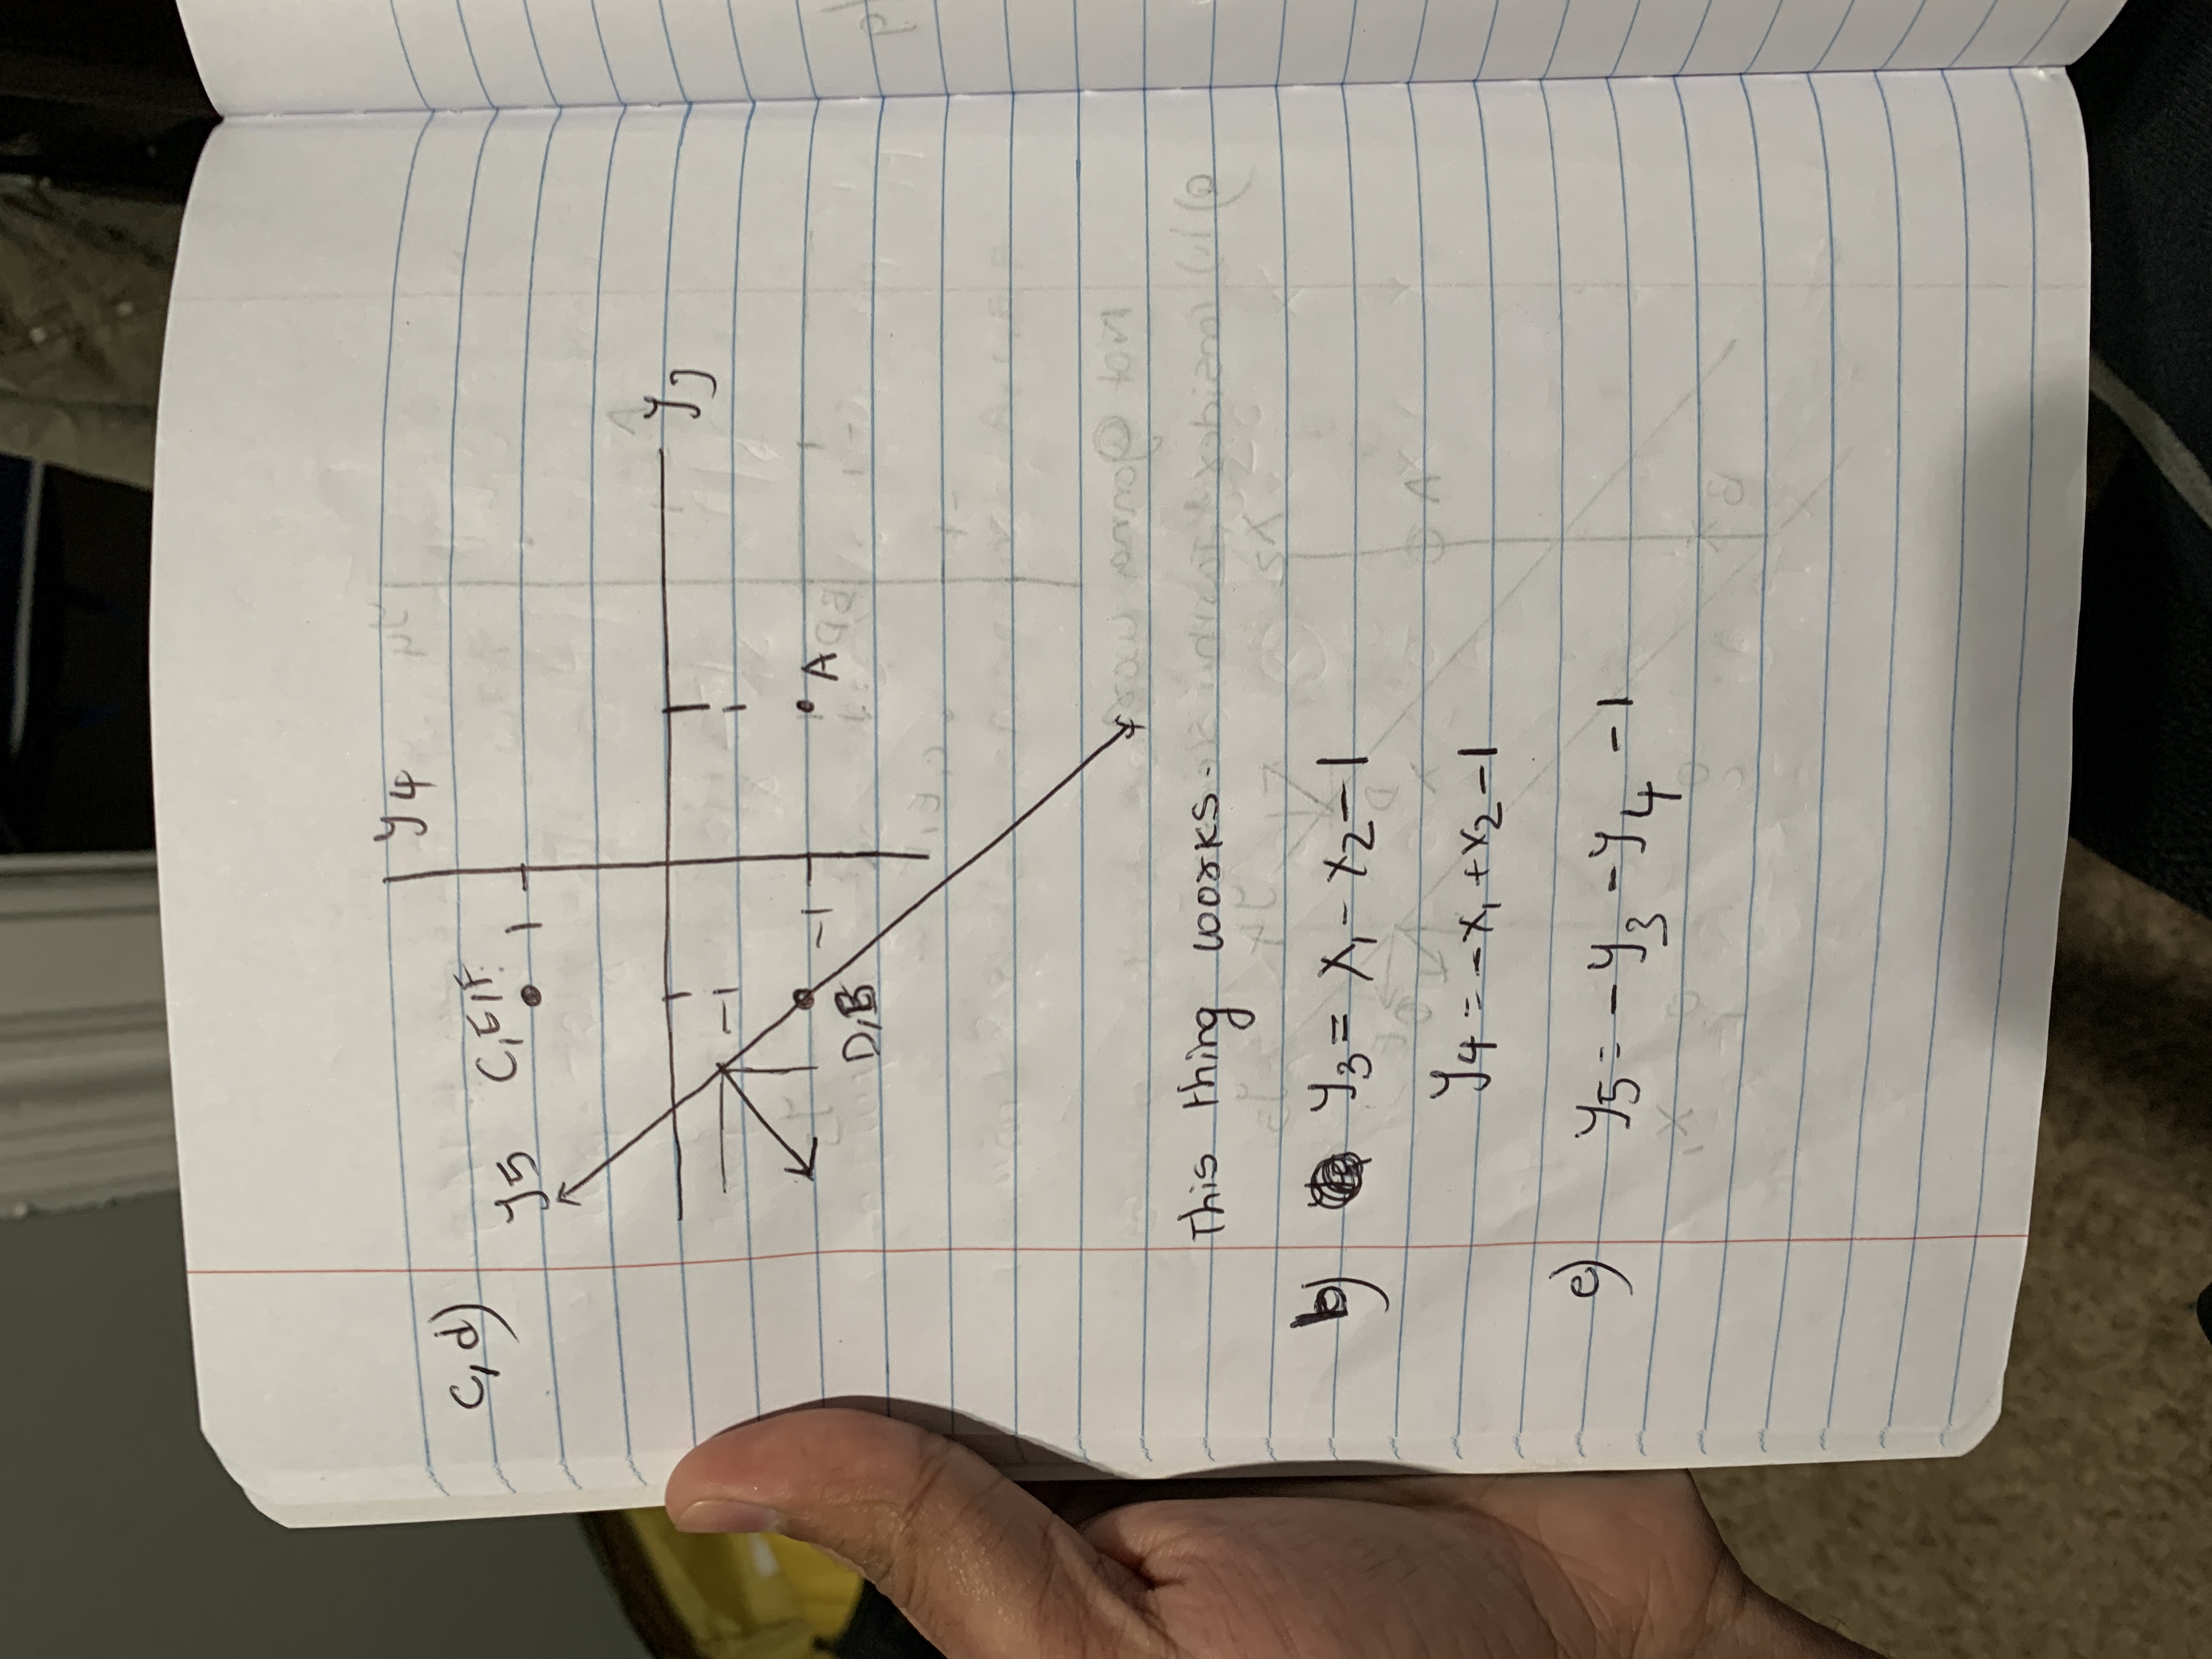 c,d)
y4
C,E,F.
y5
1
y3
-1
1
-1
A
D,B
This thing works.
b) y3 = x1 - x2 - 1
y4 = -x1 + x2 - 1
e) y5 = -y3 - y4 - 1